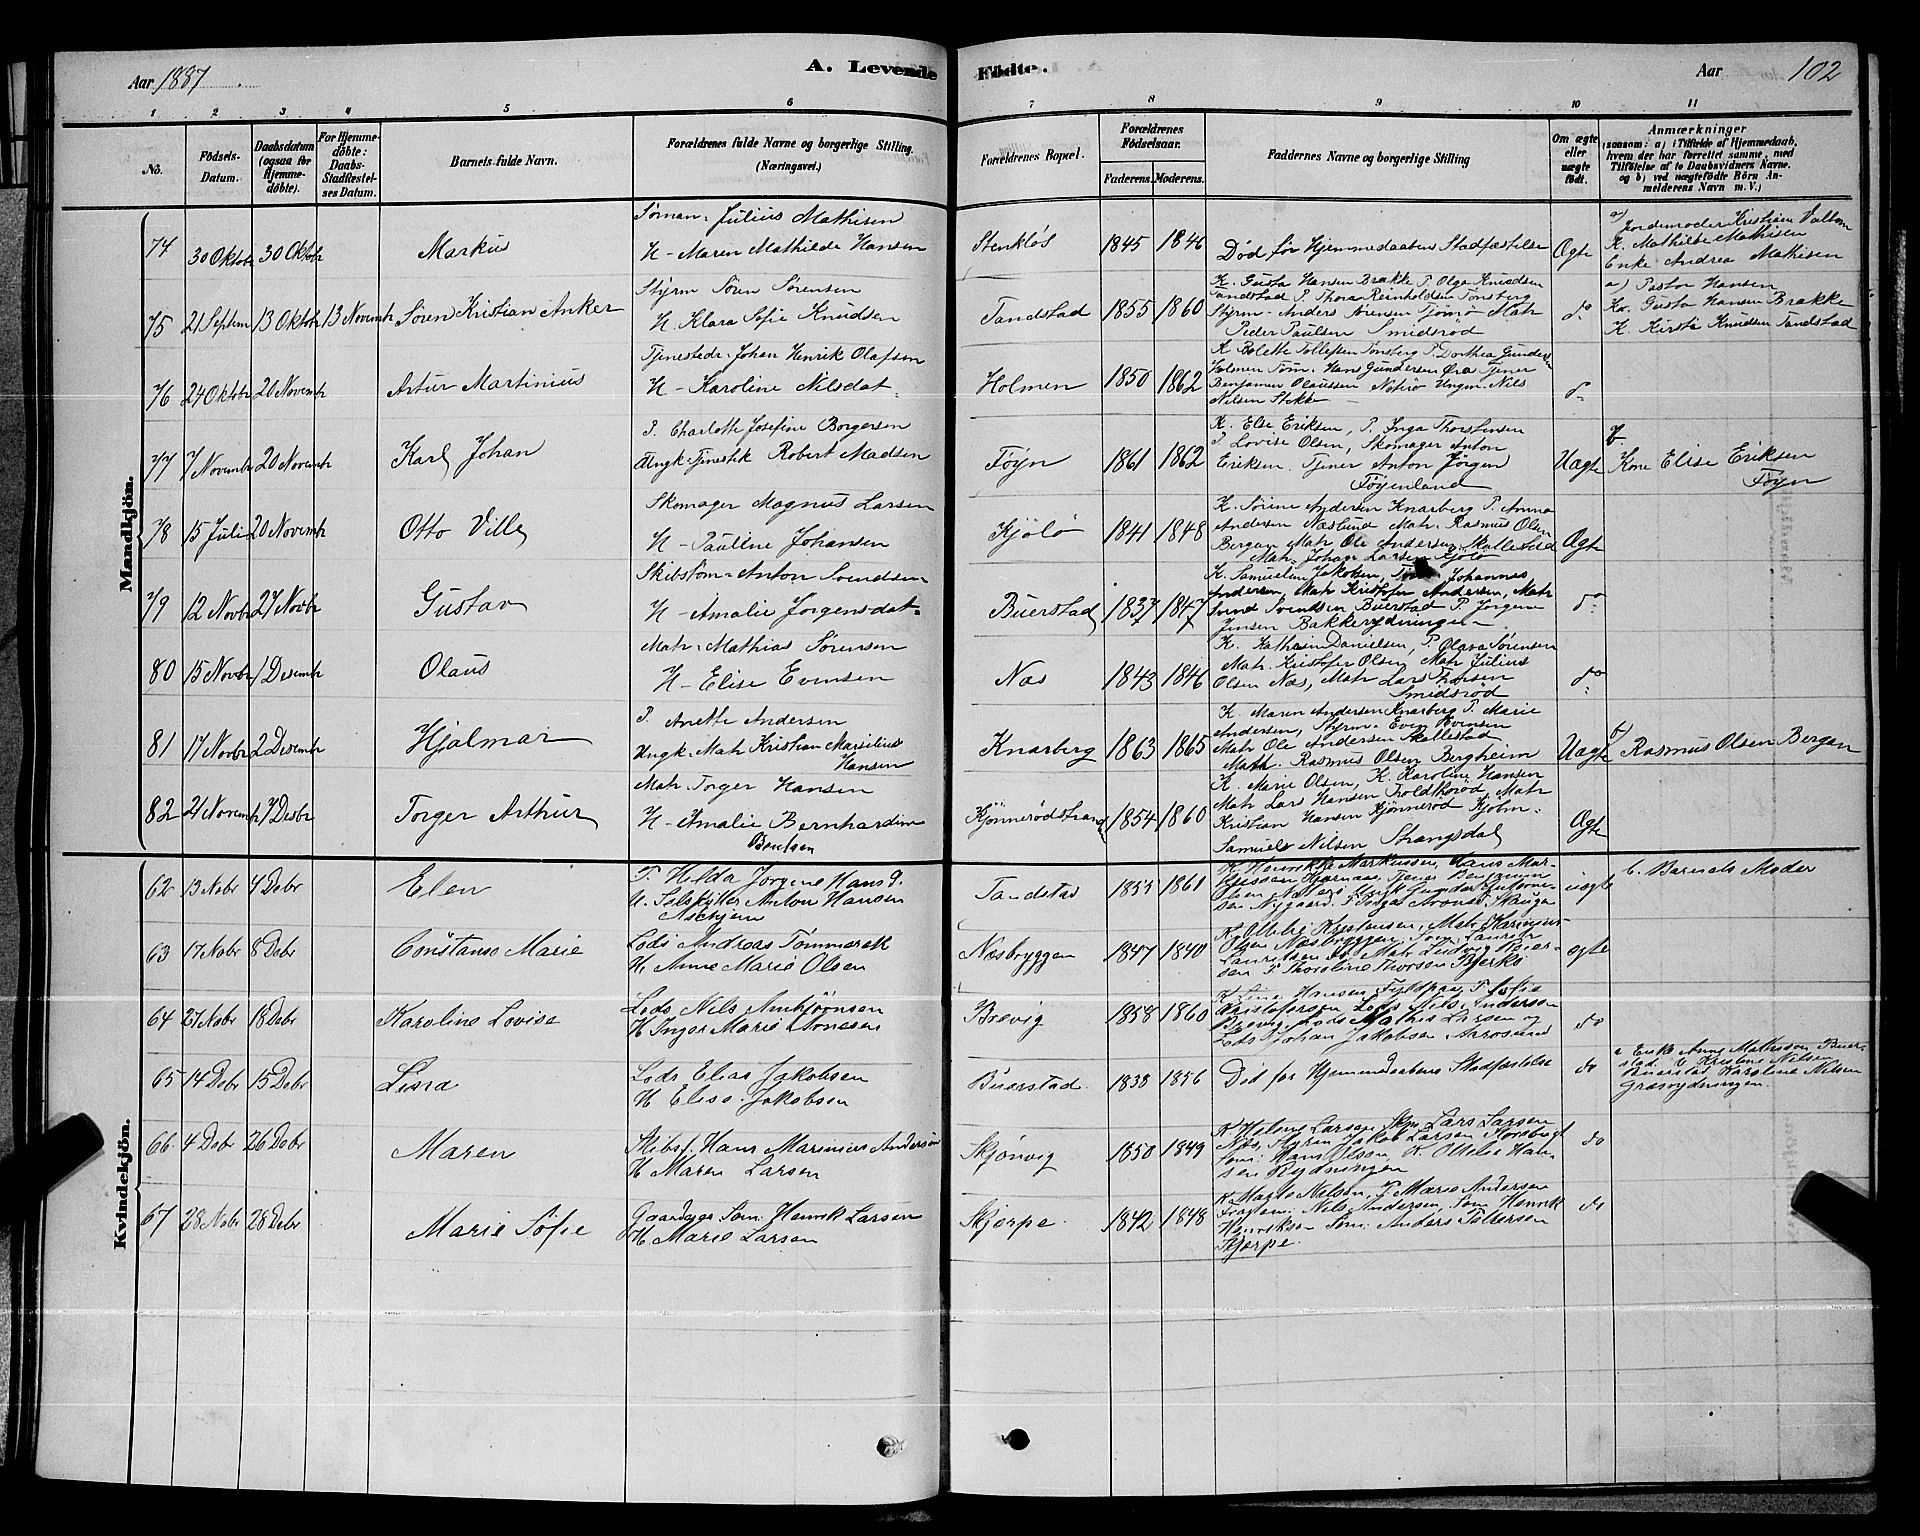 Aar 1887
A. Levende
Födte.
Aar
102
1 2 3 4 5 6 7 8 9 10 11
No.
Födsels-
Datum.
Daabsdatum
(ogsaa for
Hjemme-
döbte).
For Hjemme-
döbte:
Daabs-
Stadfæstel-
ses Datum.
Barnets fulde Navn.
Forældrenes fulde Navne og borgerlige Stilling.
(Næringsvei.)
Forældrenes Bopæl.
Forældrenes
Födselsaar.
Faderens. Moderens.
Faddernes Navne og borgerlige Stilling
Om ægte
eller
uægte
födt.
Anmærkninger
(saasom: a) i Tilfælde af Hjemmedaab,
hvem der har forrettet samme, med
Tilföielse af to Daabsvidners Navne.
og b) ved uægtefödte Börn An-
melderens Navn m. V.)
Mandkjön.
74 30 Oktobr 30 Oktobr Markus
Søman: Julius Mathisen
H- Maren Mathilde Hansen
Stenkløs 1845 1846 Død før Hjemmedaabens Stadfæstelse Ægte
a) Jordemoder Kristiane
K. Mathilde Mathisen
Enke Andrea Mathisen
75 21 Septem 13 Oktobr 13 Novembr Søren Kristian Anker
Styrm Søren Sørensen
H. Klara Sofie Knudsen
Tandstad 1855 1860
K. Gusta Hansen Brække P. Olga Knudsen
Tandstad P. Thora Reinholdsen Tønsberg
Styrm- Anders Sørensen Tjømø Matr
Peder Paulsen Smidsrød
do
a) Pastor Hansen
Ka. Gusta Hansen Brække
K. Kirsta Knudsen Tandstad
76 24 Oktobr 20 Novembr Artur Martinius
Tjenestedr. Johan Henrik Olafsen
H- Karoline Nilsdat
Holmen 1850 1862
K Bolette Tollefsen Tønsberg P. Dorthea Gunders
Holmen Tøm. Hans Gundersen Øra Tjener
Benjamin Olaussen Nøtirø Ungm. Nils
Nilsen Stokke
do
77 7 Novembr 20 Novembr Karl Johan
P. Charlotte Josefine Borgersen
Ungk- Tjenestek Robert Madsen
Føyn 1861 1862
K. Else Eriksen, P. Inga Thorstensen
P. Lovise Olsen, Skomager Anton
Eriksen. Tjener Anton Jørgen
Føyenland
Uægte
b.
Kone Elise Eriksen
Føyn
78 15 Juli 20 Novembr Otto Ville
Skomager Magnus Larsen
H- Pauline Johansen
KjøLø 1841 1848
K. Sørine Andersen Knarberg P. Anna
Andersen Næslund Matr. Rasmus Olsen
Bergan Matr Ole Andersen Skallestad
Matr. Johan Larsen Kjølø
Ægte
79 12 Novbr 27 Novbr Gustav
Skibstøm- Anton Svendsen
H- Amalie Jørgensdat
Buerstad 1837 1847
K. Samuelsen Jakobsen, Johannes
Andersen, Matr Kristofer Andersen, Matr
Svend Svendsen Buerstad P. Jørgine
Jensen Bakkerydningen
do
80 15 Novbr 1 Desembr Olaus
Matr. Mathias Sørensen
H- Elise Evensen
Næs 1843 1846
K. Kathrin Danielsen, P. Olava Sørensen
Matr. Kristofer Olsen Matr Julius
Olsen Næs, Matr Lars
Smidsrød
do
81 17 Novbr 2 Desembr Hjalmar
P. Anette Andersen
Ungk. Matr Kristian Marsilius
Hansen
Knarberg 1863 1865
K. Maren Andersen Knarberg P. Marie
Andersen, Styrm. Even Evensen
Matr Ole Andersen Skallestad
Math. Rasmus Olsen Bergheim
Uægte
b) Rasmus Olsen Bergan
82 21 Novembr 7 Desbr Torger Arthur
Matr. Torger Hansen
H- Amalie Bernhardine
Bentsen
Kjønnerødstrand 1854 1860
K. Marie Olsen, K. Karoline Hansen
Matr Lars Hansen Troldkerød, Matr
Kristian Hansen Kjønnerød Kjøbm.
Samuel Nilsen Strangsdal
Ægte
Kvindekjön.
62 13 Nobr 4 Debr Elen
P. Hilda Jorgine Hansd.
U. Sælskytter Anton Hansen
Aschjem
Tandstad 1855 1861
K. Henrikke Markussen, Hans Mar-
uægte
b. Barnets Moder
63 17 Nobr 8 Debr Constanse Marie
Lods Andreas Tømmerek
H. Anne Marie Olsen
Næsbryggen 1847 1840
Olsen Næsbryggen
sen P Thoroline Thorsen Bjerke
ægte
64 27 Nobr 18 Debr Karoline Lovise
Lods Nils Ambjørnsen
H Inger Marie Arnesen
Brevig 1858 1860
K Lina Hansen P. Sofie
Kristofersen Lods Nils Andersen
Brevig, Lods Mathis Larsen og
Lods Johan Jakobsen Aarøsund
do
65 14 Debr 15 Debr Lisra
Lods Elias Jakobsen
H Elise Jakobsen
Buerstad. 1838 1856 Død før Hjemmedaabens Stadfæstelse do
a Enke Anne Mathisson Buer-
stad. E Kristine Nilsen
Buerstad, Karoline Nilsen
Græsrydningen.
66 4 Debr 26 Debr Maren
Skibsf. Hans Marinius Andersen
H Maren Larsen
Skjønvig 1850 1849
K Helene Larsen Skpr Lars Larsen
Næs, Styrm Jakob Larsen
Søm: Hans Olsson, K. Othelie Han-
sen Rydningen
do
67 28 Nobr 28 Debr Marie Sofie
Gaardbgr Søm: Henrik Larsen
H. Marie Larsen
Skjerpe. 1842 1848
K. Marte Nilsen, P Marie Andersen
Nils Andersen, Søm Henrik
Henriksen Søm: Anders Tollefsen
Skjerpe.
do